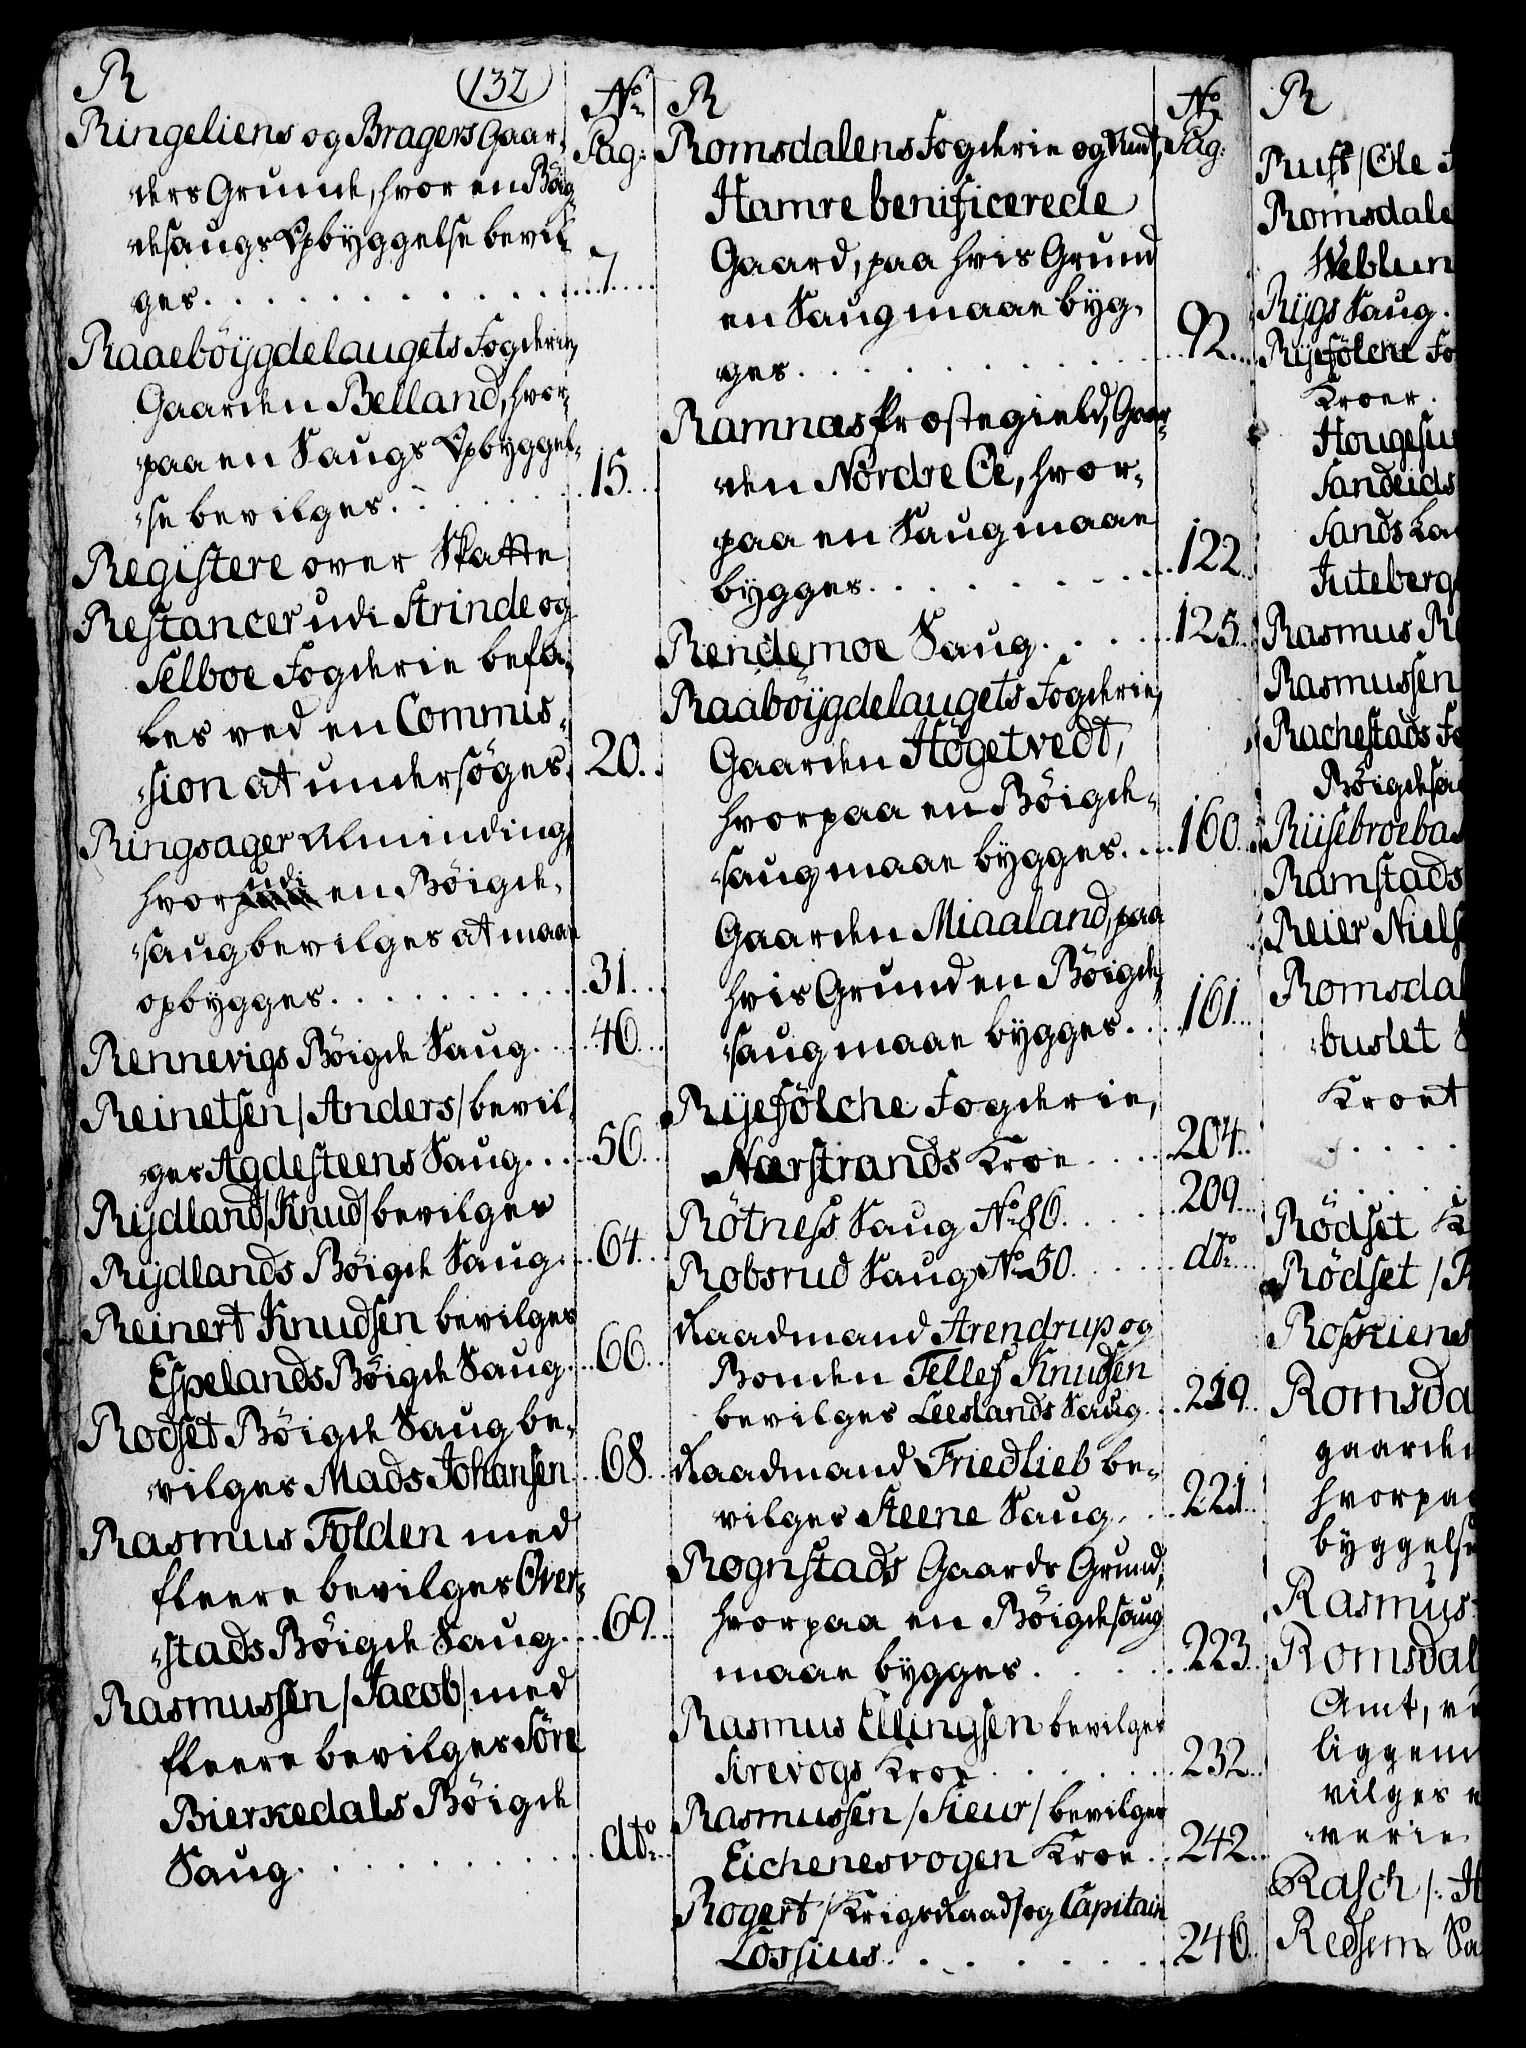 R 132 No Pag:
Ringeliens og Bragers Gaar-
ders Grunde, hvor en Böig-
desaugs Opbyggelse bevil-
ges . . . 7.
Raaeböÿgdelaugets Fogderie,
Gaarden Belland, hvor-
paa en Saugs Opbyggel-
se bevilges . . . 15.
Registere over Skatte
Restancer udi Strinde og
Selboe Fogderie befa-
les ved en Commis-
sion at undersöges. 20.
Ringsager Alminding,
hvorudi en Böigde-
saug bevilges at maae
opbygges . . . 31.
Rennevigs Böigde Saug . . . 40.
Reinetsen /Anders/ bevil-
ges Agdesteens Saug . . . 50.
Rÿdland /Knud/ bevilges
Rÿdlands Böigde Saug . . . 64.
Reinert Knudsen bevilges
Espelands Böigde Saug . . . 66.
Rodset Böigde Saug be-
vilges Mads Johansen . . . 68.
Rasmus Folden med
fleere bevilges Over-
stads Böigde Saug . . . 69.
Rasmussen /Jacob/ med
fleere bevilges Söre
Bierkedals Böigde
Saug . . . dto
R No Pag:
Romsdalens Fogderie og
Hamre benificerede
Gaard, paa hvis Grund
en Saug maae byg-
ges . . . 92.
Ramnæs Præstegield, Gaar-
den Nordre Oe, hvor-
paa en Saug maae
bygges . . . 122.
Rendemoe Saug . . . 125.
Raaböÿgdelaugets Fogderie,
Gaarden Högetvedt,
hvorpaa en Böigde-
saug maae bygges . . . 160.
Gaarden Miaaland, paa
hvis Grund en Böigde-
saug maae bygges . . . 161.
Rÿefölche Fogderie,
Nærstrands Kroe . . . 204.
Rötness Saug No 80. . . . 209.
Robsrud Saug No 50. . . . dto
Raadmand Arendrup og
Bonden Tellef Knudsen
bevilges Leeslands Saug . . . 219.
Raadmand Friedlieb be-
vilges Steene Saug . . . 221.
Rognstads Gaards Grund,
hvorpaa en Böigdesaug
maae bygges . . . 223.
Rasmus Ellingsen bevilges
Sirevogs Kroe . . . 232.
Rasmussen /Sieur/ bevilges
Eichenesvogen Kroe . . . 242.
Rogert /KrigsRaad/ og Capitain
Lossius . . . 246.
R
Rust /Ole
Romsdale
Weblun
Rÿgs Saug.
Rÿefölche Fo
Kroer.
Hougesu
Sandeids
Sands La
Juteberg
Rasmus R
Rasmussen
Rachestads Fo
Böigdesa
Riisebroeba
Ramstads
Reier Niels
Romsdal
buslet
Kroet
Rödset K
Rödset /
Rosskiens
Romsda
gaarden
hvorpaa
byggelse
Rasmus
Romsdal
Amt,
liggen
vilges
verie
Rasch /: H
Redsem Sa